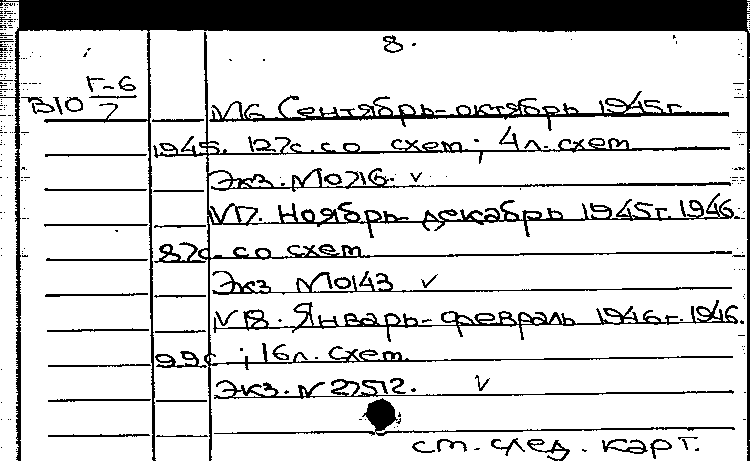 8.
В10 Г-6/7
N6 Сентябрь-октябрь 1945г.
1945. 127с. со схем.; 4л. схем
Экз. N0716. ✓
N7. Ноябрь-декабрь 1945г. 1946.
87с. со схем
Экз N0143 ✓
N8. Январь-февраль 1946г. 1946.
99с.; 16л. схем.
Экз. N 27512. ✓
см. след. карт.